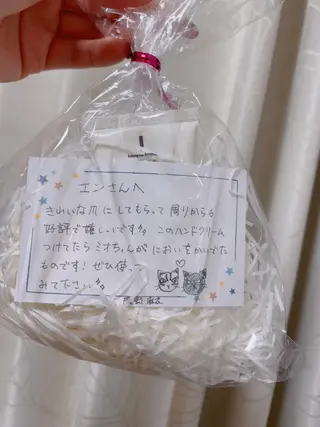 エンさんへ
きれいな爪にしてもらって周りからも
好評で嬉しいです。このハンドクリーム
つけてたらミオちゃんがにおいをかいでた
ものです！ぜひ使って
みて下さい